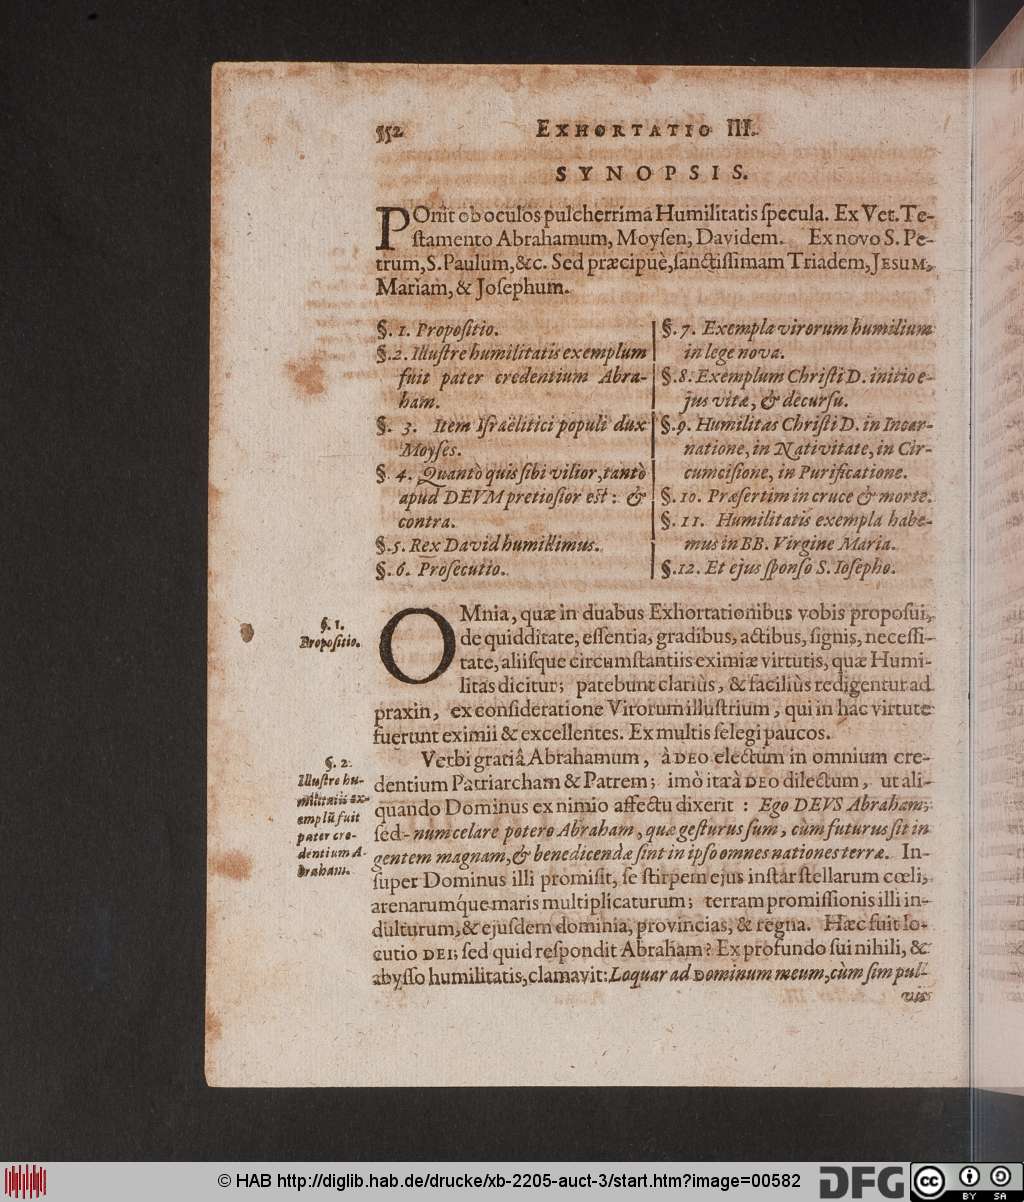 552 EXHORTATIO III.
SYNOPSIS.
POnit ob oculos pulcherrima Humilitatis ſpecula. Ex Vet. Te-
ſtamento Abrahamum, Moyſen, Davidem. Ex novo S. Pe-
trum, S. Paulum, &c. Sed præcipuè, ſanctiſſimam Triadem, JESUM,
Mariam, & Joſephum.
§. 1. Propoſitio.
§. 2. Illuſtre humilitatis exemplum
fuit pater credentium Abra-
ham.
§. 3. Item Iſraëlitici populi dux
Moyſes.
§. 4. Quantò quis ſibi vilior, tantò
apud DEVM pretioſior est: &
contra.
§. 5. Rex David humillimus.
§. 6. Proſecutio.
§. 7. Exempla virorum humilium
in lege nova.
§. 8. Exemplum Chriſti D. initio e-
jus vitæ, & decurſu.
§. 9. Humilitas Chriſti D. in Incar-
natione, in Nativitate, in Cir-
cumciſione, in Purificatione.
§. 10. Præſertim in cruce & morte.
§. 11. Humilitatis exempla habe-
mus in BB. Virgine Maria.
§. 12. Et ejus ſponſo S. Ioſepho.
§. 1.
Propoſitio.
OMnia, quæ in duabus Exhortationibus vobis propoſui,
de quidditate, eſſentia, gradibus, actibus, ſignis, neceſſi-
tate, aliiſque circumſtantiis eximiæ virtutis, quæ Humi-
litas dicitur; patebunt clariùs, & faciliùs redigentur ad
praxin, ex conſideratione Virorum illuſtrium, qui in hac virtute
fuerunt eximii & excellentes. Ex multis ſelegi paucos.
§. 2.
Illuſtre hu-
militatis ex-
emplũ fuit
pater cre-
dentium A-
braham.
Verbi gratiâ Abrahamum, à DEO electum in omnium cre-
dentium Patriarcham & Patrem; imò ita à DEO dilectum, ut ali-
quando Dominus ex nimio affectu dixerit: Ego DEVS Abraham;
ſed - num celare potero Abraham, quæ geſturus ſum, cùm futurus ſit in
gentem magnam, & benedicendæ ſint in ipſo omnes nationes terræ. In-
ſuper Dominus illi promiſit, ſe ſtirpem ejus inſtar ſtellarum cœli,
arenarumq́ue maris multiplicaturum; terram promiſſionis illi in-
dulturum, & ejuſdem dominia, provincias, & regna. Hæc fuit lo-
cutio DEI; ſed quid reſpondit Abraham? Ex profundo ſui nihili, &
abyſſo humilitatis, clamavit: Loquar ad DOMINUM meum, cùm ſim pul-
vis
© HAB http://diglib.hab.de/drucke/xb-2205-auct-3/start.htm?image=00582
DFG
cc BY SA